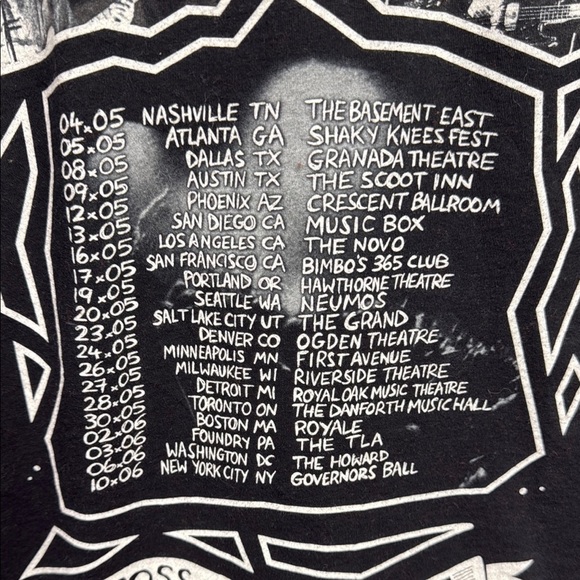 04x05 NASHVILLE TN THE BASEMENT EAST
05x05 ATLANTA GA SHAKY KNEES FEST
08x05 DALLAS TX GRANADA THEATRE
09x05 AUSTIN TX THE SCOOT INN
12x05 PHOENIX AZ CRESCENT BALLROOM
13x05 SAN DIEGO CA MUSIC BOX
16x05 LOS ANGELES CA THE NOVO
17x05 SAN FRANCISCO CA BIMBO'S 365 CLUB
19x05 PORTLAND OR HAWTHORNE THEATRE
20x05 SEATTLE WA NEUMOS
23x05 SALT LAKE CITY UT THE GRAND
24x05 DENVER CO OGDEN THEATRE
26x05 MINNEAPOLIS MN FIRST AVENUE
27x05 MILWAUKEE WI RIVERSIDE THEATRE
28x05 DETROIT MI ROYAL OAK MUSIC THEATRE
30x05 TORONTO ON THE DANFORTH MUSIC HALL
02x06 BOSTON MA ROYALE
03x06 FOUNDRY PA THE TLA
06x06 WASHINGTON DC THE HOWARD
10x06 NEW YORK CITY NY GOVERNORS BALL